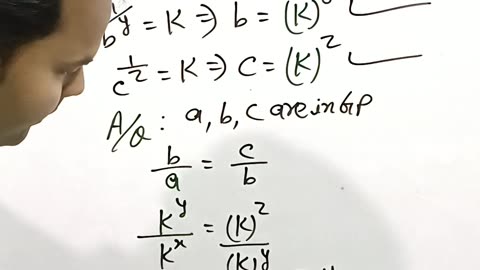 b^{1/y} = K ⇒ b = (K)
c^{1/2} = K ⇒ C = (K)^2
A/Q : a, b, c are in GP
b/a = c/b
K^y/K^x = (K)^2/(K)^y